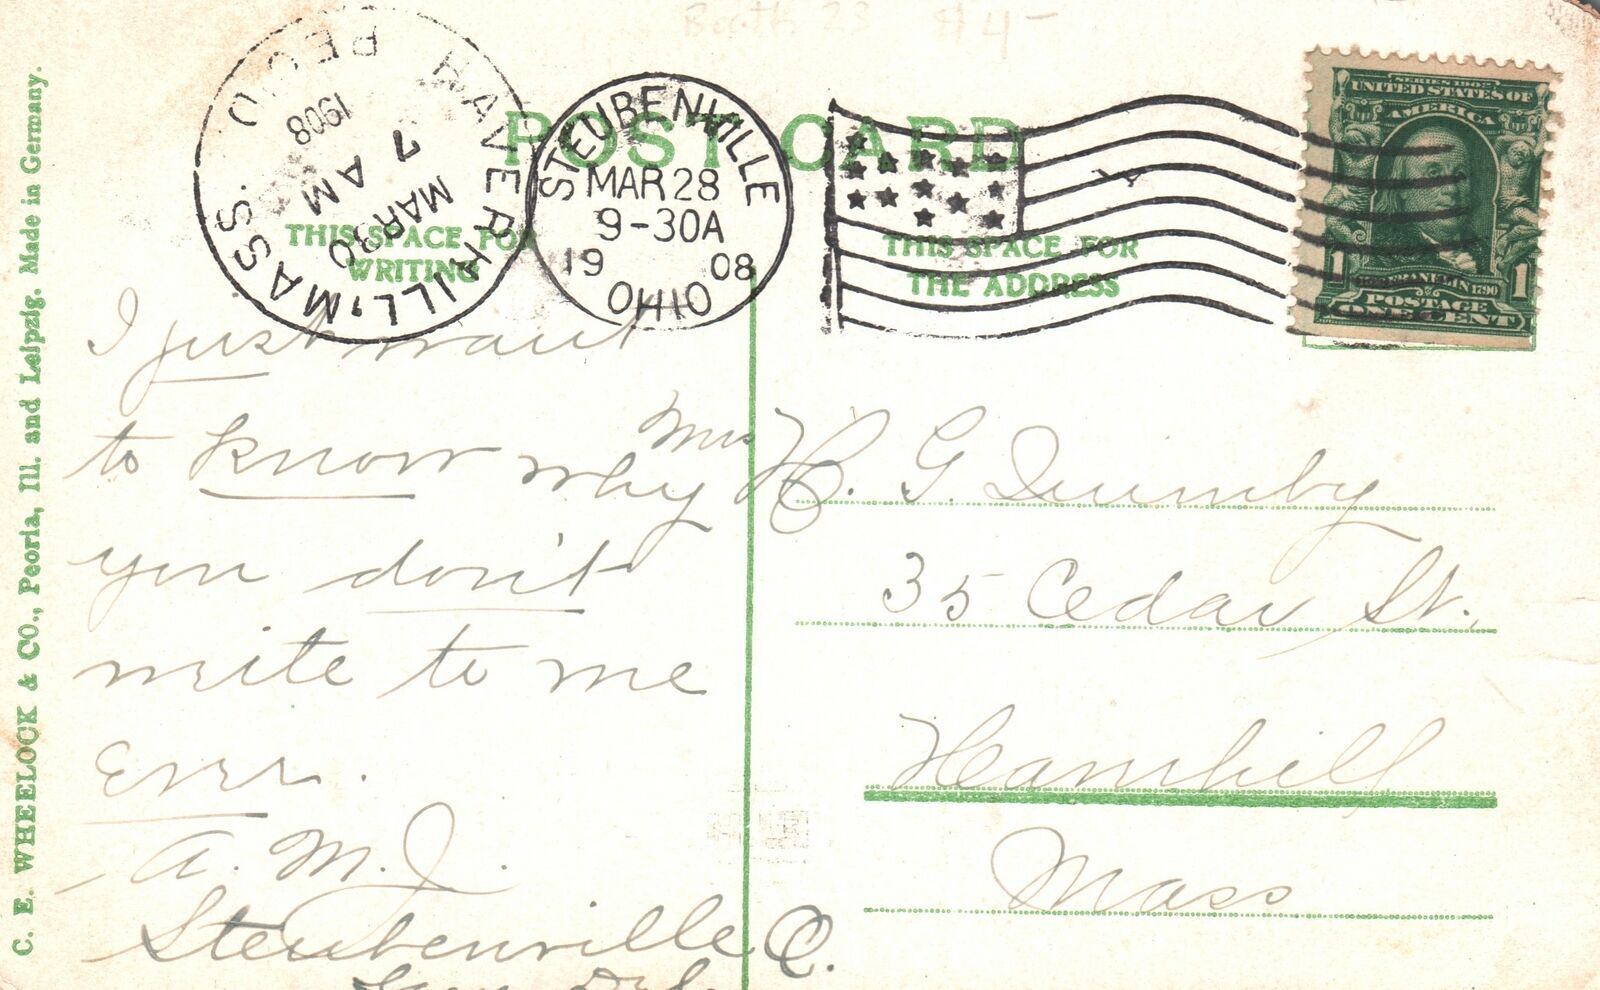 Booth 23 #4-
HAVERHILL, MASS.
MAR 30
7 AM
1908
REC'D
STEUBENVILLE
MAR 28
9-30A
1908
OHIO
POST CARD
THIS SPACE FOR
WRITING
THIS SPACE FOR
THE ADDRESS
SERIES 1902
UNITED STATES OF
AMERICA
1 FRANKLIN 1790 1
POSTAGE
ONE CENT
C. E. WHEELOCK & CO., Peoria, Ill. and Leipzig. Made in Germany.
I just want
to know why
you don't
write to me
ever.
A. M. J.
Steubenville O.
Mrs H. G. Quimby
35 Cedar St.
Haverhill
Mass